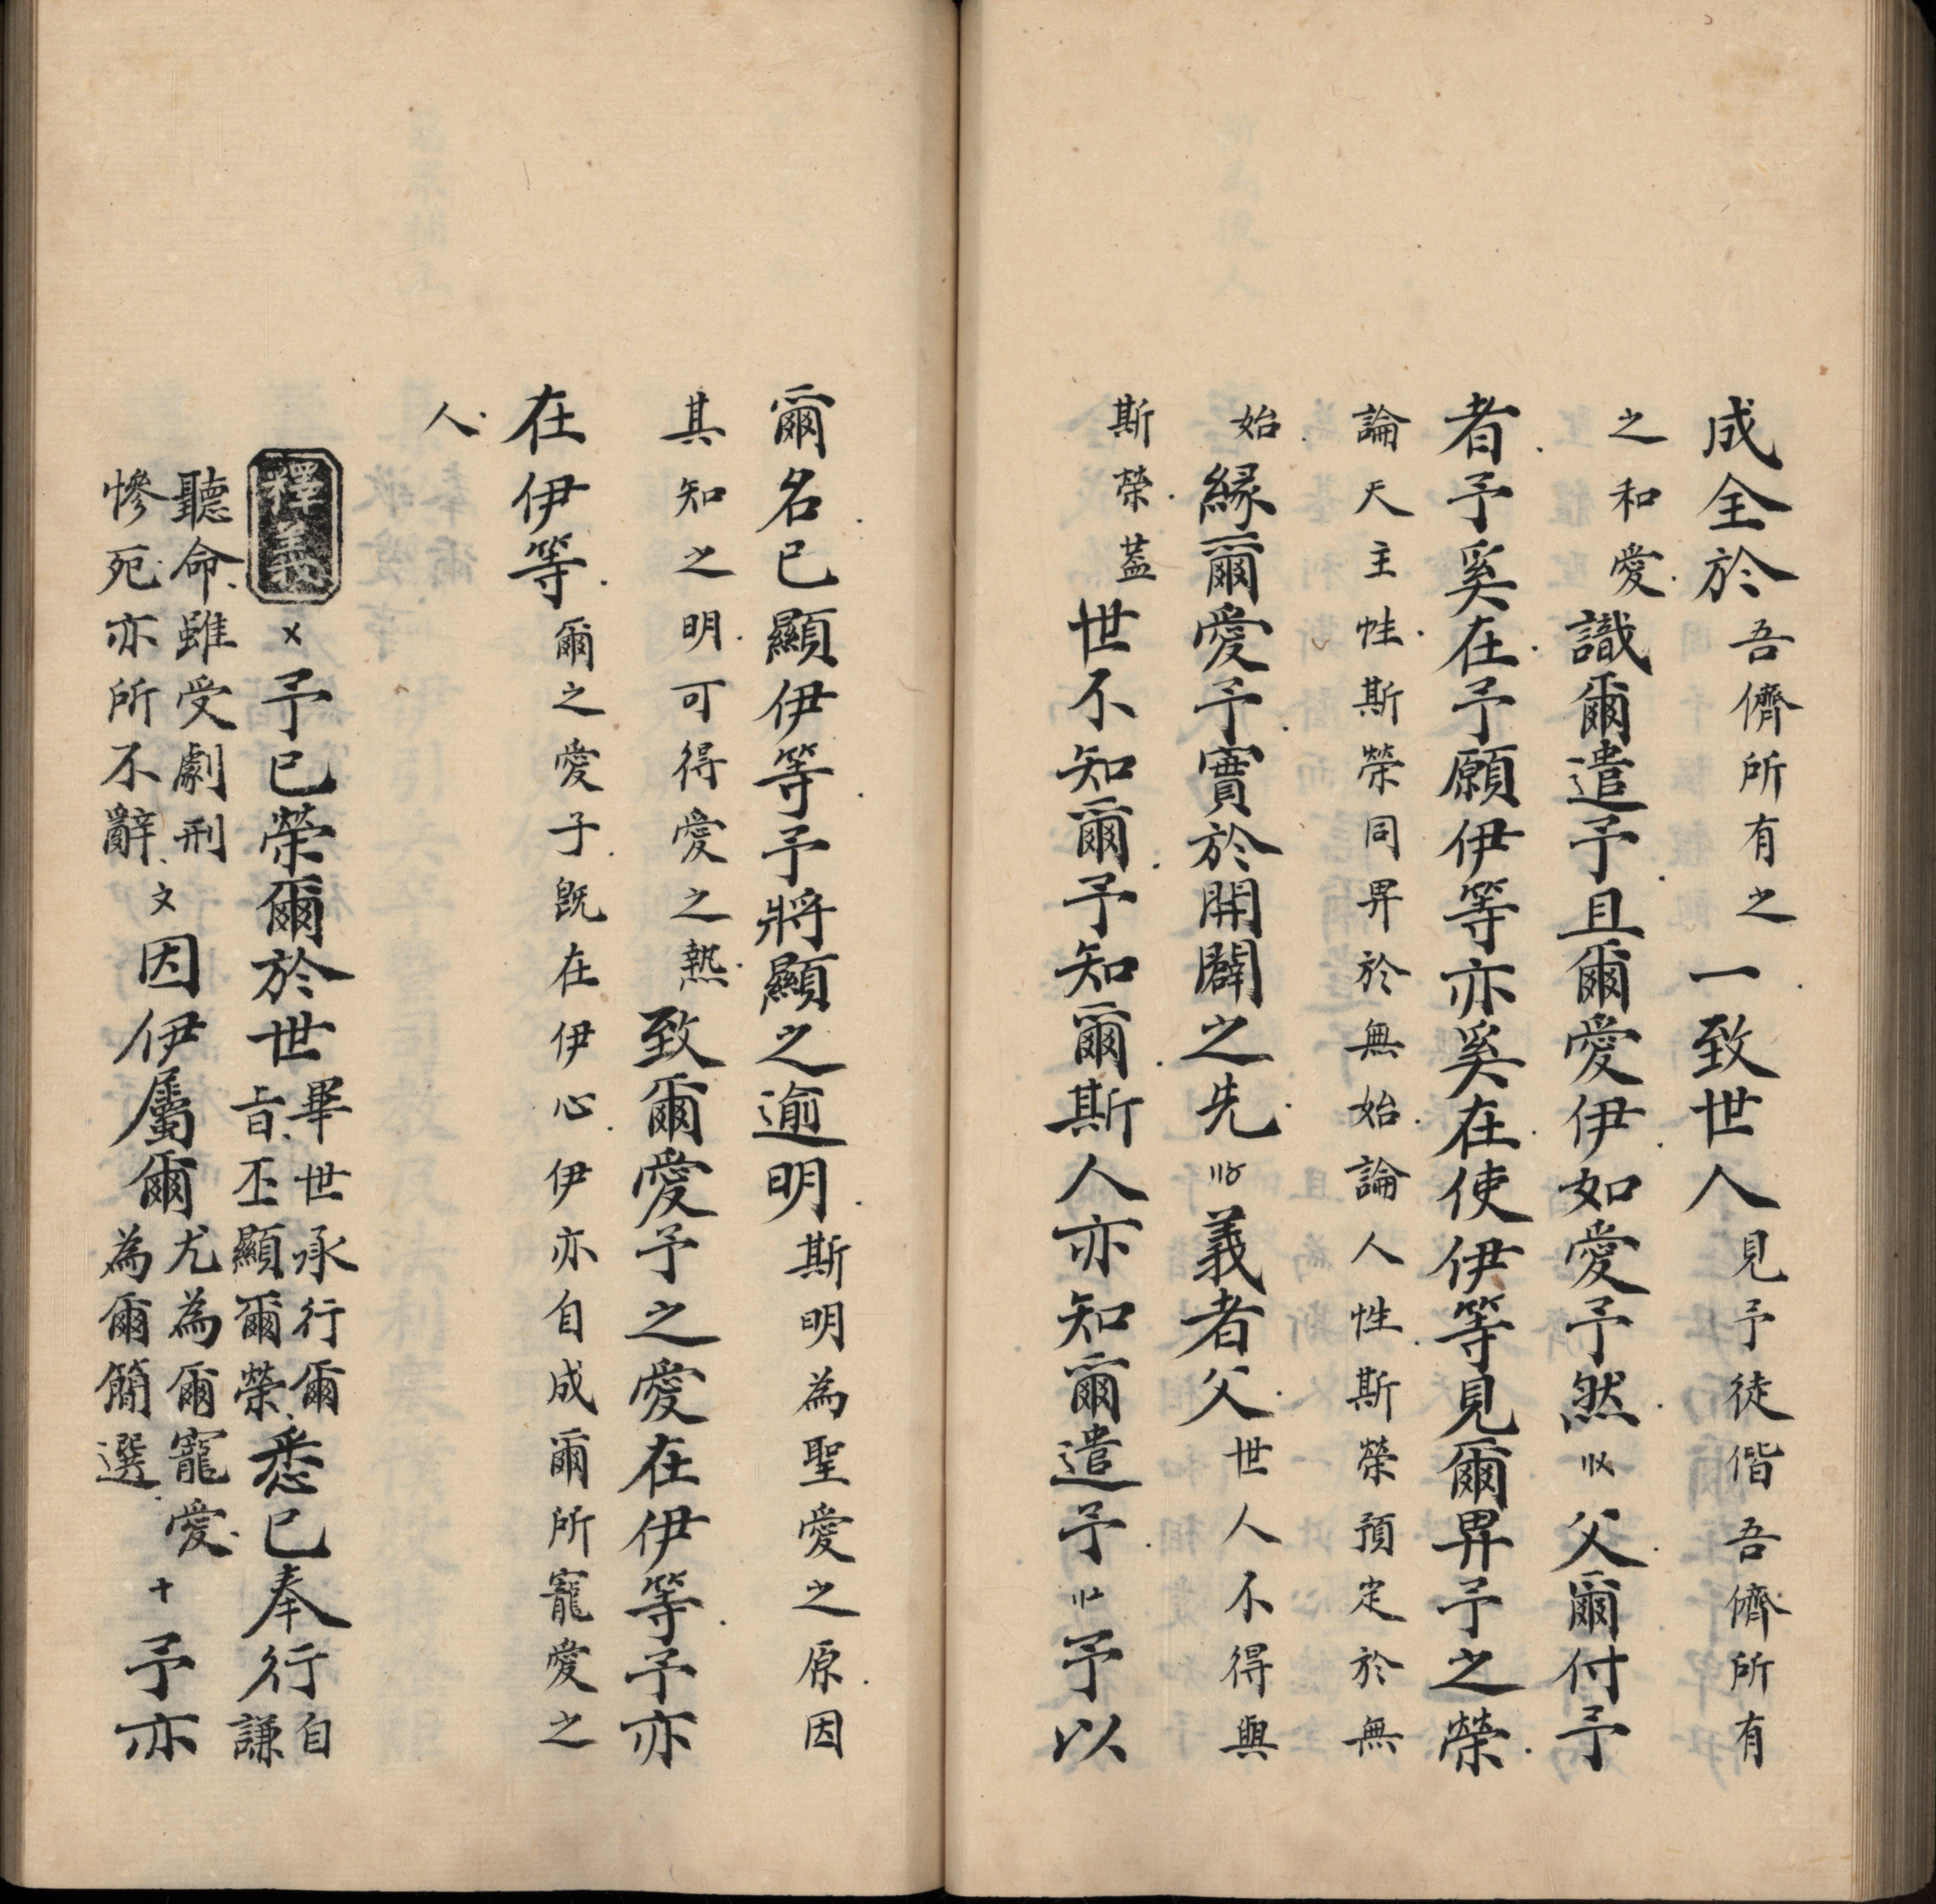 成全於吾儕所有之一致世人見予徒偕吾儕所有
之和愛識爾遣予且爾愛伊如愛予然〢〤父爾付予
者予奚在予願伊等亦奚在使伊等見爾畀予之榮
論天主性斯榮同畀於無始論人性斯榮預定於無
始緣爾愛予實於開闢之先〢〥義者父世人不得與
斯榮蓋世不知爾予知爾斯人亦知爾遣予〢〦予以
爾名已顯伊等予將顯之逾明斯明為聖愛之原因
其知之明可得愛之熱致爾愛予之愛在伊等予亦
在伊等爾之愛子既在伊心伊亦自成爾所寵愛之
人
釋義〤予已榮爾於世畢世承行爾旨丕顯爾榮悉已奉行自謙
聽命雖受劇刑慘死亦所不辭〩因伊屬爾尤為爾寵愛為爾簡選〸予亦